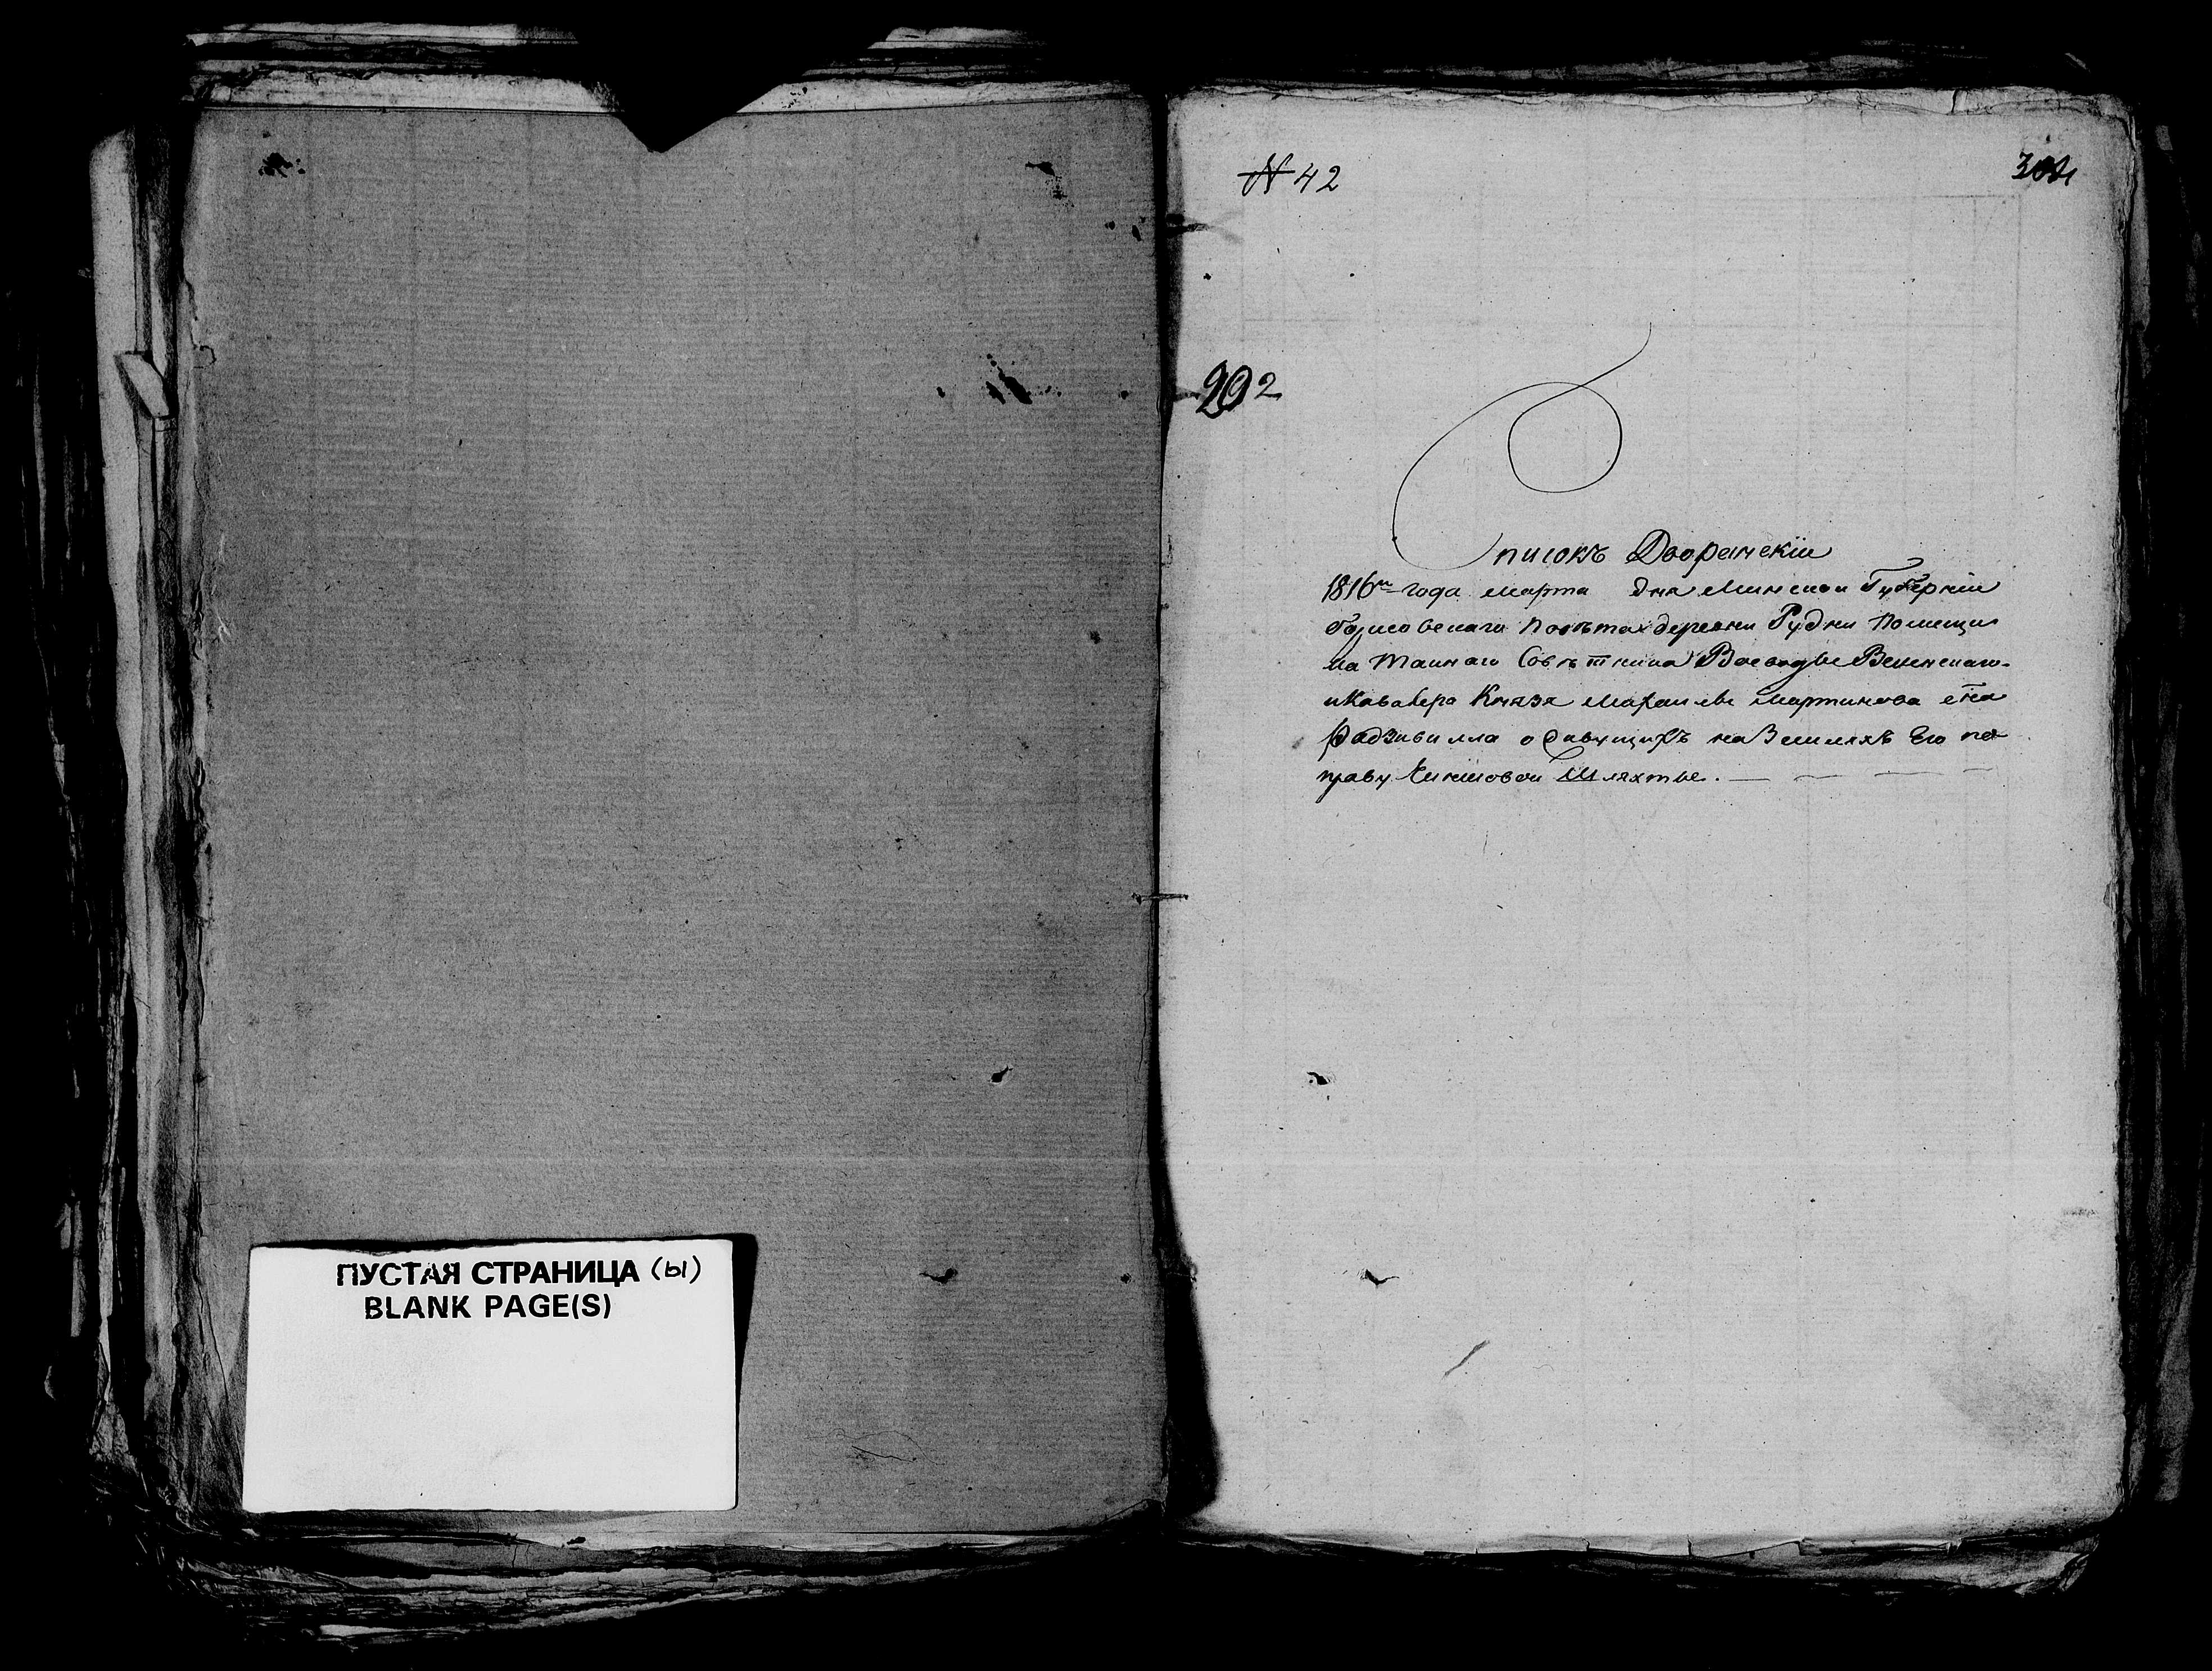 ПУСТАЯ СТРАНИЦА (ы)
BLANK PAGE(S)
N 42
292
Списокъ Дворянскiи
1816го года марта дня Минскои Губернiи
Борисовскаго Повѣта деревни Рудни Помещи
ка Таинаго Совѣтника Воеводы Виленскаго
и Кавалера Князя Михаилы Мартинова сна
Радзивилла о Сидящихъ на Земляхъ Его по
праву Чиншовои Шляхты.